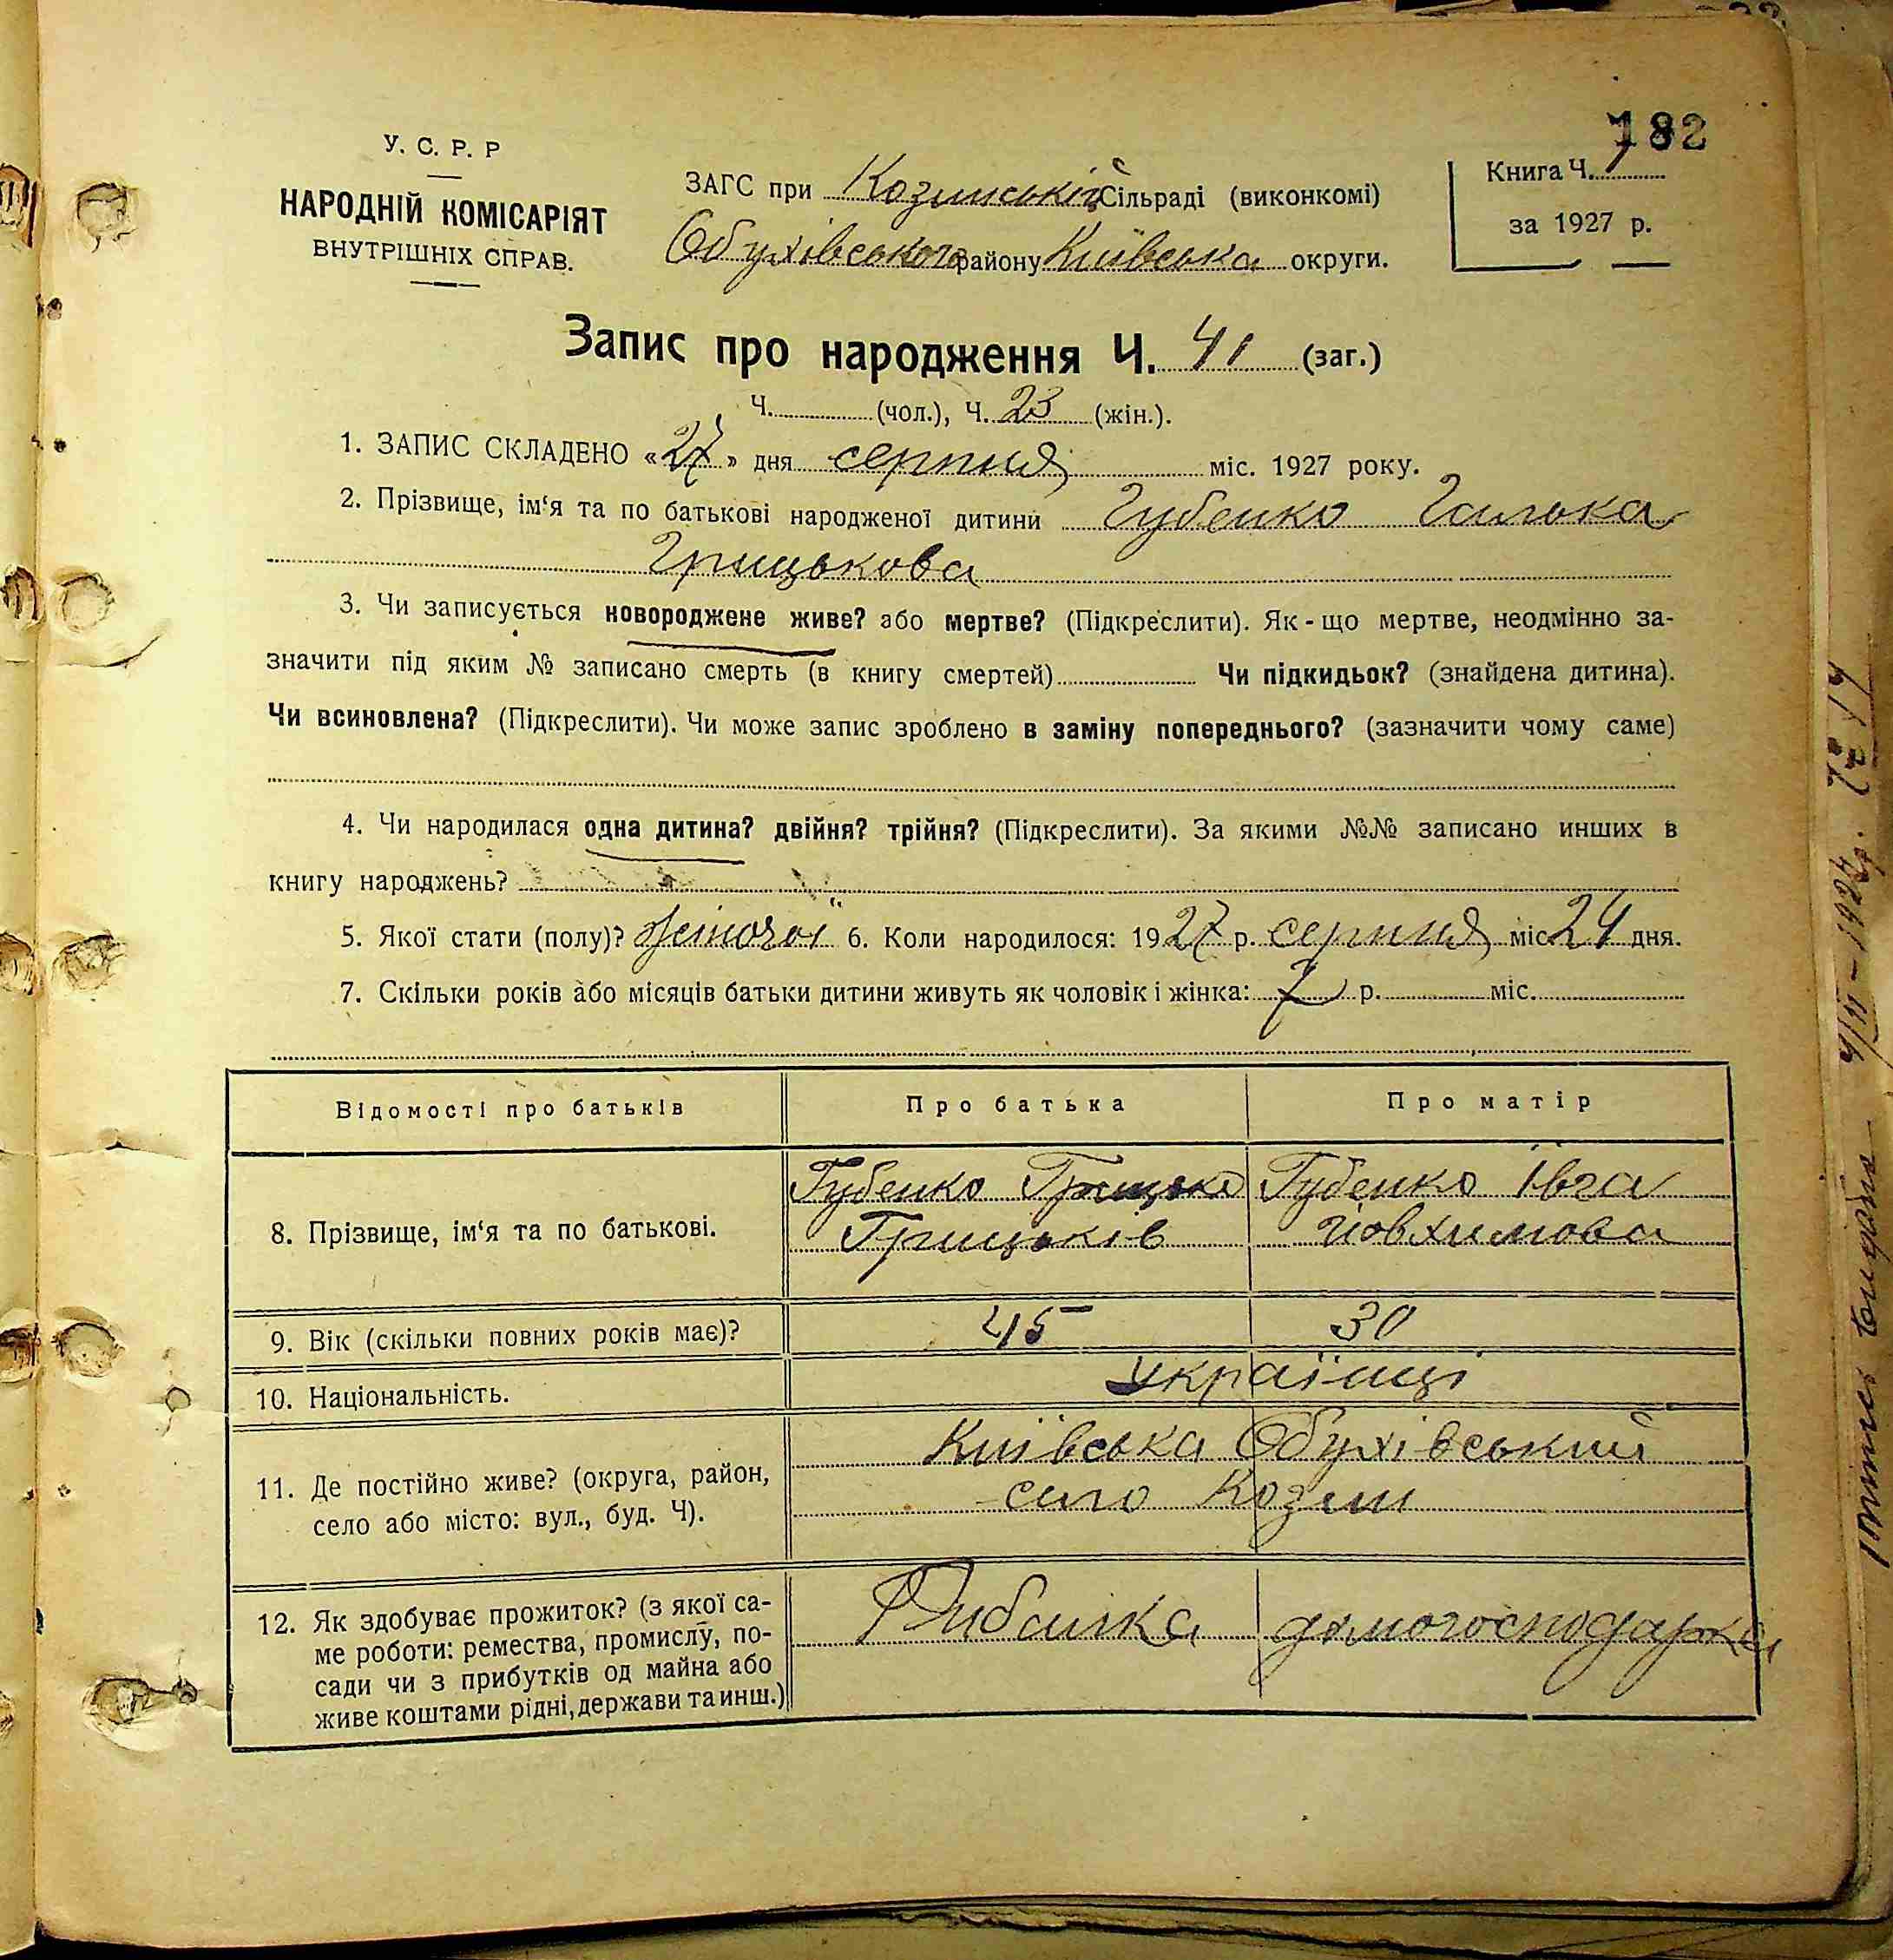 182
У. С. Р. Р
НАРОДНІЙ КОМІСАРІЯТ
ВНУТРІШНІХ СПРАВ.
ЗАГС при Козинській Сільраді (виконкомі)
Обухівського району Київська округи.
Книга Ч. 1
за 1927 р.
Запис про народження Ч. 41 (заг.)
Ч. (чол.), Ч. 23 (жін.).
1. ЗАПИС СКЛАДЕНО «27» дня серпня міс. 1927 року.
2. Прізвище, ім‘я та по батькові народженої дитини Губенко Галька
Грицькова
3. Чи записується новороджене живе? або мертве? (Підкреслити). Як-що мертве, неодмінно за-
значити під яким № записано смерть (в книгу смертей) Чи підкидьок? (знайдена дитина).
Чи всиновлена? (Підкреслити). Чи може запис зроблено в заміну попереднього? (зазначити чому саме)
4. Чи народилася одна дитина? двійня? трійня? (Підкреслити). За якими №№ записано инших в
книгу народжень?
5. Якої стати (полу)? жіночої 6. Коли народилося: 1927 р. серпня міс 24 дня.
7. Скільки років або місяців батьки дитини живуть як чоловік і жінка: 7 р. міс.
Відомості про батьків Про батька Про матір
8. Прізвище, ім‘я та по батькові.
Губенко Грицько Губенко Івга
Грицьків Йовхимова
9. Вік (скільки повних років має)? 45 30
10. Національність. Українці
11. Де постійно живе? (округа, район,
село або місто: вул., буд. Ч).
Київська Обухівський
село Козин
12. Як здобуває прожиток? (з якої са-
ме роботи: ремества, промислу, по-
сади чи з прибутків од майна або
живе коштами рідні, держави та инш.)
Рибалка домогосподарка